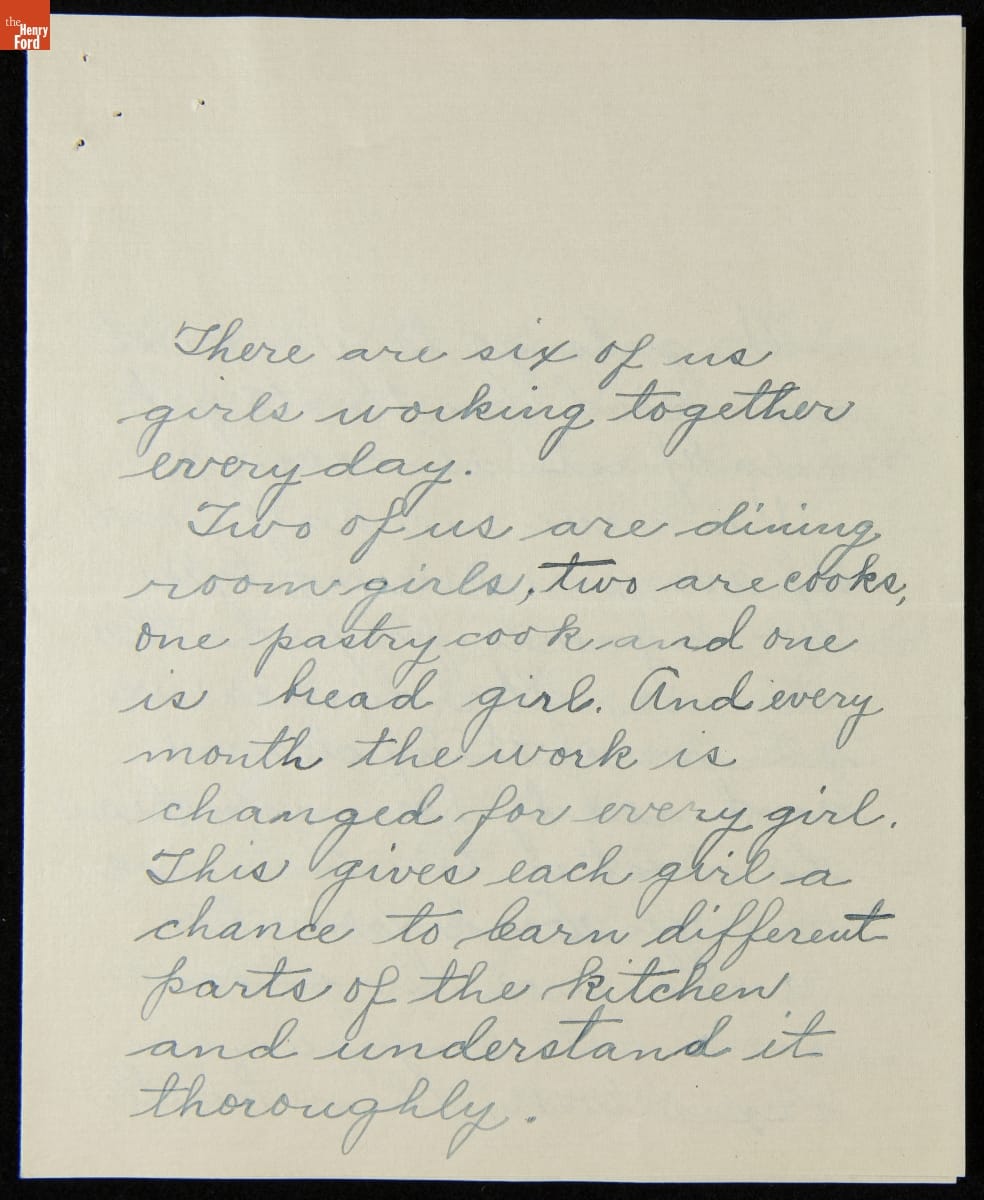 the
Henry
Ford
There are six of us
girls working together
every day.
Two of us are dining
room girls, two are cooks,
one pastry cook and one
is bread girl. And every
month the work is
changed for every girl.
This gives each girl a
chance to learn different
parts of the kitchen
and understand it
thoroughly.